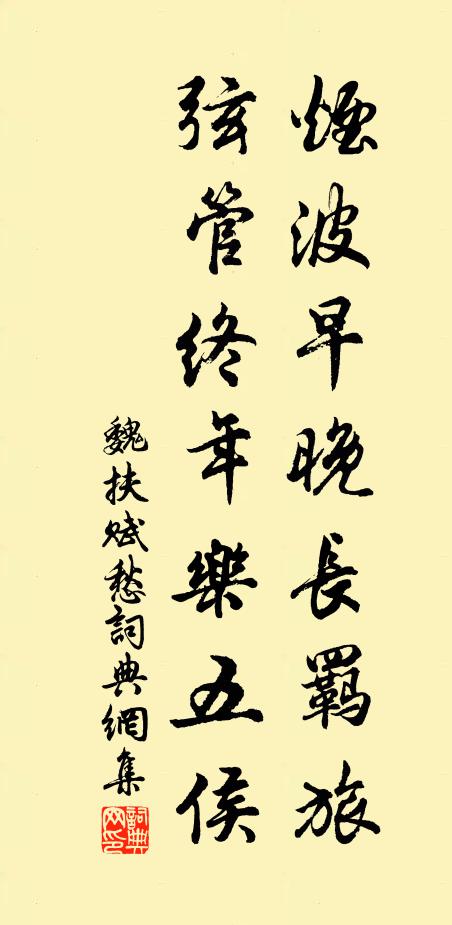 煙波早晚長羈旅
弦管終年樂五侯
魏扶賦愁詞典網集
詞典網印